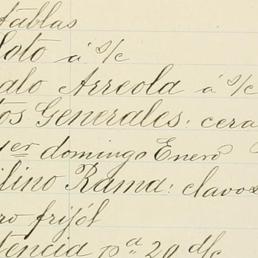 tablas
Soto á s/c
alo Arreola á s/c
tos Generales: cera
1er domingo Enero
ilino Rama: clavos
ro frijól
dencia pª 20 d/c